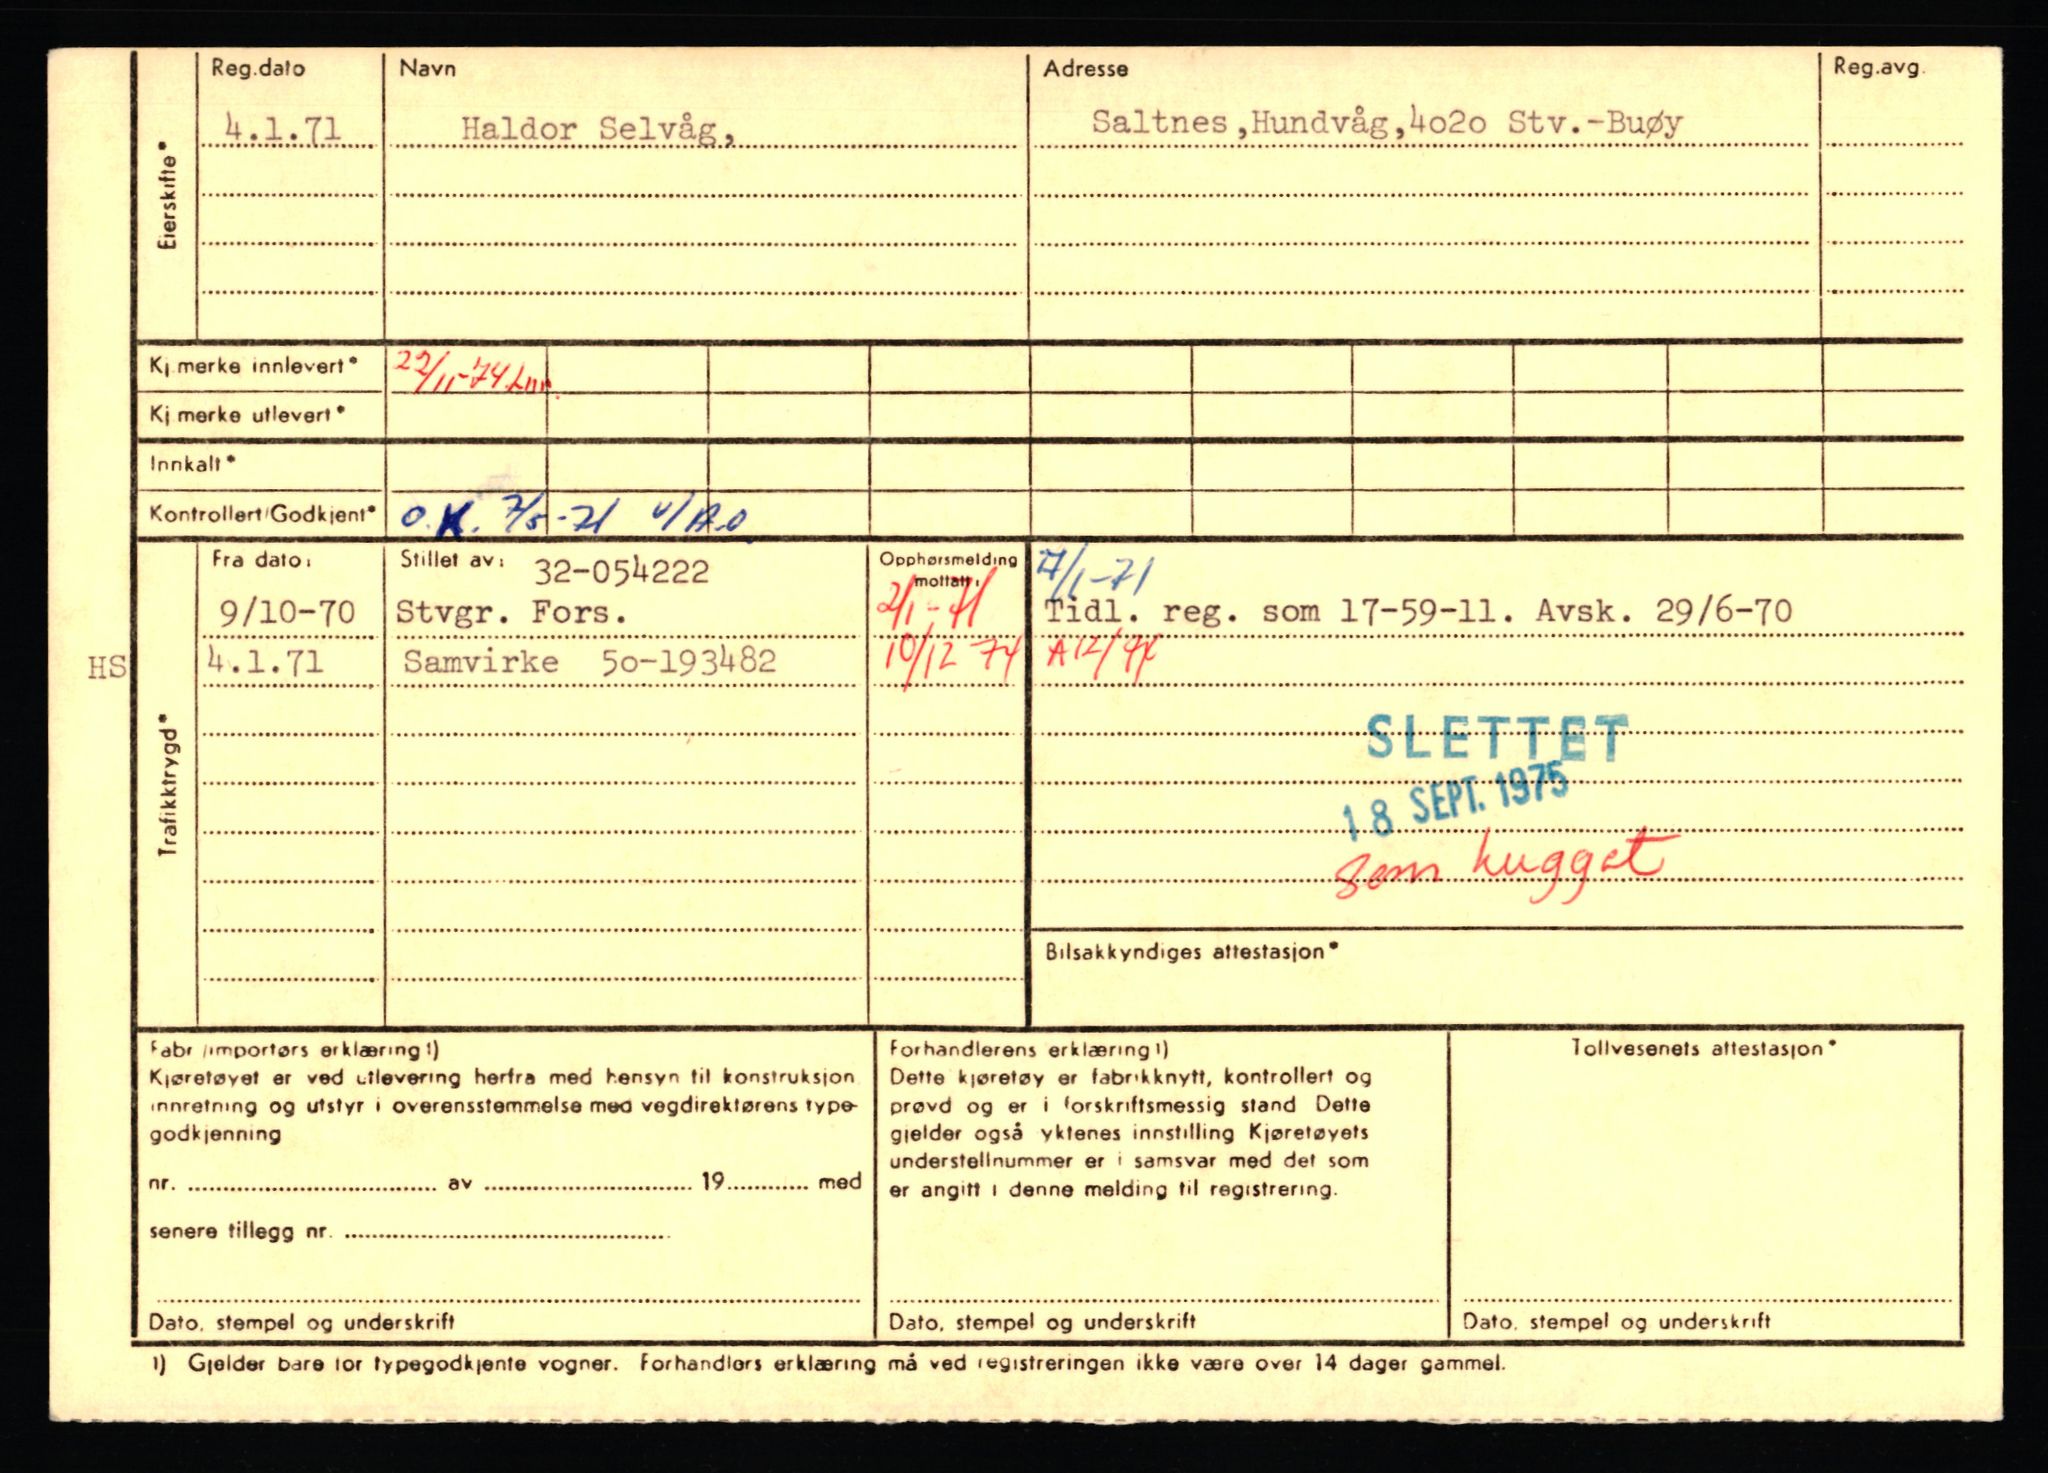 Reg.dato Navn Adresse Reg.avg.
Eierskifte*
4.1.71 Haldor Selvåg, Saltnes,Hundvåg,4020 Stv.-Buøy
Kj.merke innlevert* 22/11-74
Kj.merke utlevert*
Innkalt*
Kontrollert/Godkjent* O.K. 7/5-71 v/A.O
Fra dato: Stillet av: 32-054222 Opphørsmelding mottatt: 7/1-71
9/10-70 Stvgr. Fors. 2/1-71 Tidl. reg. som 17-59-11. Avsk. 29/6-70
HS 4.1.71 Samvirke 50-193482 10/12 74 A12/74
Trafikktrygd*
SLETTET
18 SEPT. 1975
som hugget
Bilsakkyndiges attestasjon*
Fabr./importørs erklæring 1)
Kjøretøyet er ved utlevering herfra med hensyn til konstruksjon
innretning og utstyr i overensstemmelse med vegdirektørens type-
godkjenning
nr. .......... av .......... 19.......... med
senere tillegg nr. ..........
Dato, stempel og underskrift
Forhandlerens erklæring 1)
Dette kjøretøy er fabrikknytt, kontrollert og
prøvd og er i forskriftsmessig stand Dette
gjelder også lyktenes innstilling Kjøretøyets
understellnummer er i samsvar med det som
er angitt i denne melding til registrering.
Dato, stempel og underskrift
Tollvesenets attestasjon*
Dato, stempel og underskrift
1) Gjelder bare for typegodkjente vogner. Forhandlers erklæring må ved registreringen ikke være over 14 dager gammel.